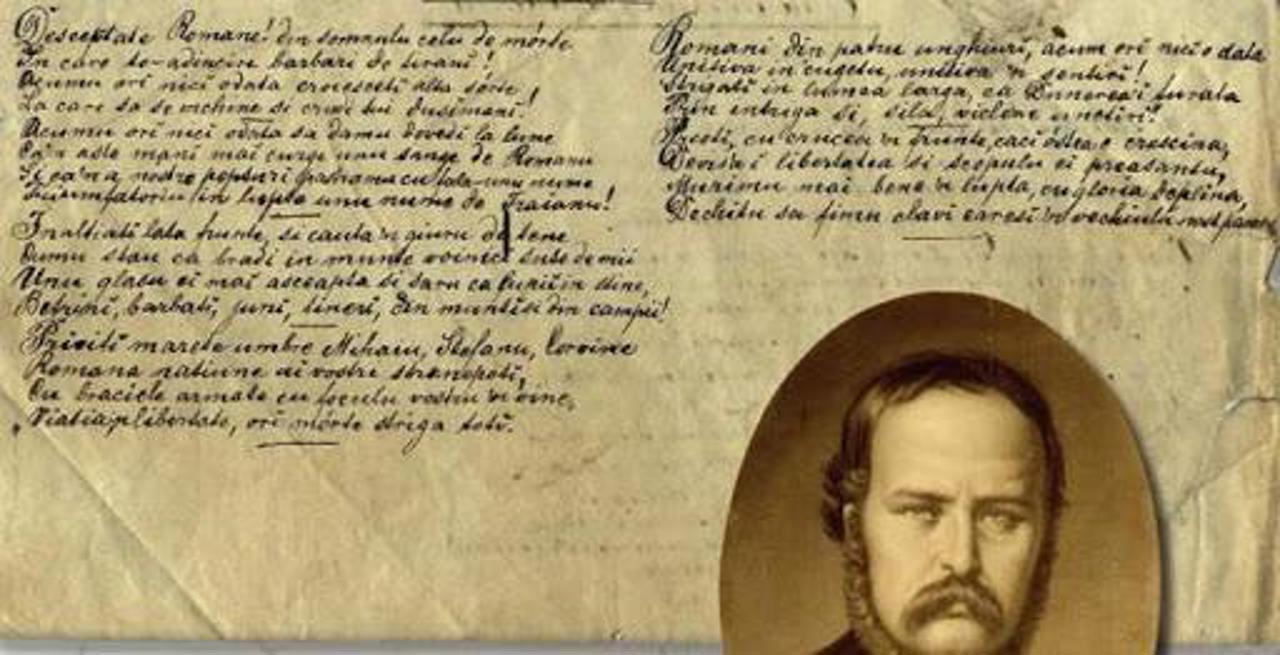 Desceptate Romane! din somnulu celu de mórte
In care te-adincira barbari de tirani!
Acumu ori nici odata croiesceti alta sórte,
La care sa se inchine si crudii tui dusimani!
Acumu ori nici odata sa damu dovedi la lume
Ca'n aste mani mai curge unu sange de Romanu
Si ca'n a nostre pepturi pastramu cu fala unu nume
Triumfatoriu in lupte unu nume de Traianu!
Inaltiati lata frunte, si cauta'n giuru de tene
Cumu stau ca bradi in munte voinici sute de mii
Unu glasu ei mai asceapta si saru ca lupii in stine,
Betrini, barbati, juni, tineri, din munti si din campii!
Priviti marete umbre Mihaiu, Stefanu, Corvine
Romana natiune ai vostri stranepoti,
Cu braciele armate cu foculu vostru'n vine,
Viatia'n libertate, ori mórte striga toti.
Romani din patru unghiuri, acum ori nici o data
Uniti-va in cugetu, uniti-va'n sentiri!
Strigati in lumea larga, ca Dunerea-i furata
Prin intriga si, sila, viclene uneltiri!
Preoti, cu crucea'n frunte, caci óstea e crestina,
Devisa-i libertatea si scopulu ei preasantu,
Murimu mai bene'n lupta, cu gloria deplina,
Dechitu sa fimu slavi earasi'n vechiulu nost